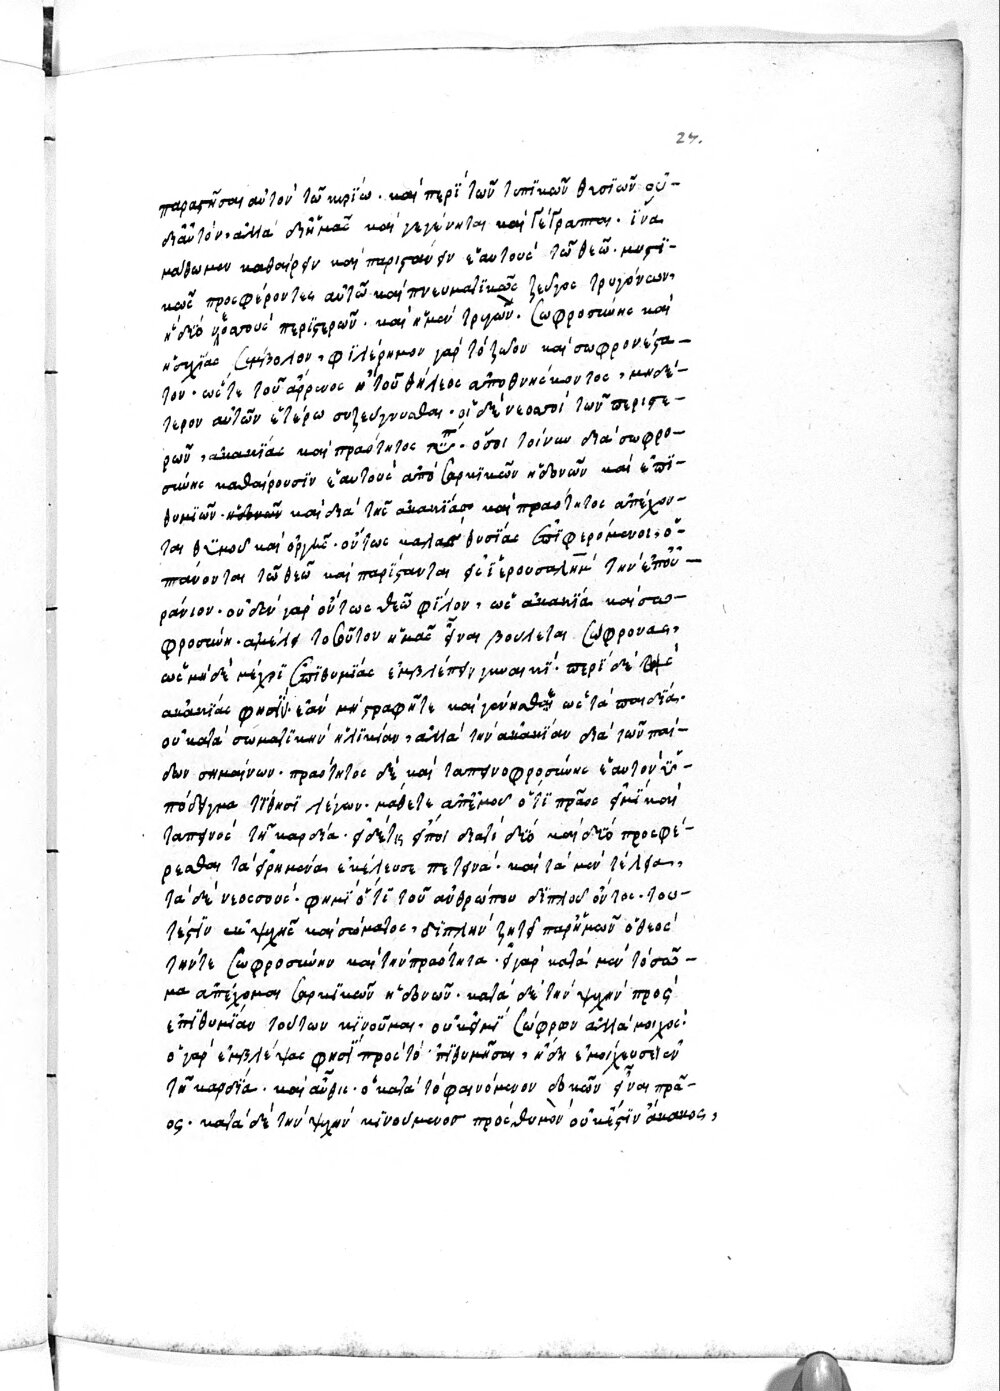 27.
παραστῆσαι αὐτὸν τῶ κυρίω · καὶ περὶ τῶν τυπικῶν θυσιῶν οὐ-
δι αὐτὸν, ἀλλὰ δι ἡμᾶς καὶ γεγένηται καὶ γέγραπται · ἵνα
μάθωμεν καθαίρειν καὶ παριστάνειν ἑαυτοὺς τῶ θεῶ · μυστι-
κῶς προσφέροντες αὐτῶ καὶ πνευματικῶς ζεῦγος τρυγόνων,
ἢ δύο νεοσσοὺς περιστερῶν · καὶ ἡ μὲν τρυγὼν · σωφροσύνης καὶ
ἡσυχίας σύμβολον, φιλέρημον γὰρ τὸ ζῶον καὶ σωφρονέστα-
τον · ὥστε τοῦ ἄρρενος ἢ τοῦ θήλεος ἀποθνήσκοντος, μηδέ-
τερον αὐτῶν ἑτέρω συζεύγνυσθαι · οἱ δὲ νεοσσοὶ τῶν περιστε-
ρῶν, ἀκακίας καὶ πραότητος · ὅσοι τοίνυν διὰ σωφρο-
σύνης καθαίρουσιν ἑαυτοὺς ἀπὸ σαρκικῶν ἡδονῶν καὶ ἐπι-
θυμιῶν · καὶ διὰ τῆς ἀκακίας καὶ πραότητος ἀπέχον-
ται θυμοῦ καὶ ὀργῆς · οὕτως καλὰς θυσίας ἐπιφερόμενοι, ὀ-
πτάνονται τῶ θεῶ καὶ παρίστανται εἰς ἱερουσαλὴμ τὴν ἐπου-
ράνιον · οὐδὲν γὰρ οὕτως θεῶ φίλον, ὡς ἀκακία καὶ σω-
φροσύνη · ἀμέλει τοσοῦτον ἡμᾶς εἶναι βούλεται σώφρονας,
ὡς μηδὲ μέχρι ἐπιθυμίας ἐμβλέπειν γυναικί · περὶ δὲ τῆς
ἀκακίας φησὶν ἐὰν μὴ στραφῆτε καὶ γένησθε ὡς τὰ παιδία ·
οὐ κατὰ σωματικὴν ἡλικίαν, ἀλλὰ τὴν ἀκακίαν διὰ τῶν παί-
δων σημαίνων · πραότητος δὲ καὶ ταπεινοφροσύνης ἑαυτὸν ὑ-
πόδειγμα τίθησι λέγων · μάθετε ἀπ ἐμοῦ ὅτι πρᾶος εἰμὶ καὶ
ταπεινὸς τῆ καρδία · εἰ δέ τις εἴποι διατὶ δύο καὶ δύο προσφέ-
ρεσθαι τὰ εἰρημένα ἐκέλευσε πετεινά · καὶ τὰ μὲν τέλεια,
τὰ δὲ νεοσσούς · φημὶ ὅτι τοῦ ἀνθρώπου διπλοῦ ὄντος · του-
τέστιν ἐκ ψυχῆς καὶ σώματος, διπλὴν ζητεῖ παρ ἡμῶν ὁ θεὸς
τήν τε σωφροσύνην καὶ τὴν πραότητα · εἰ γὰρ κατὰ μὲν τὸ σῶ-
μα ἀπέχομαι σαρκικῶν ἡδονῶν · κατὰ δὲ τὴν ψυχὴν πρὸς
ἐπιθυμίαν τούτων κινοῦμαι · οὐκ εἰμὶ σώφρων ἀλλὰ μοιχός ·
ὁ γὰρ ἐμβλέψας φησὶ πρὸς τὸ ἐπιθυμῆσαι, ἤδη ἐμοίχευσεν ἐν
τῆ καρδία · καὶ αὖθις · ὁ κατὰ τὸ φαινόμενον δοκῶν εἶναι πρᾶ-
ος · κατὰ δὲ τὴν ψυχὴν κινούμενος πρὸς θυμὸν οὐκ ἔστιν ἄκακος,